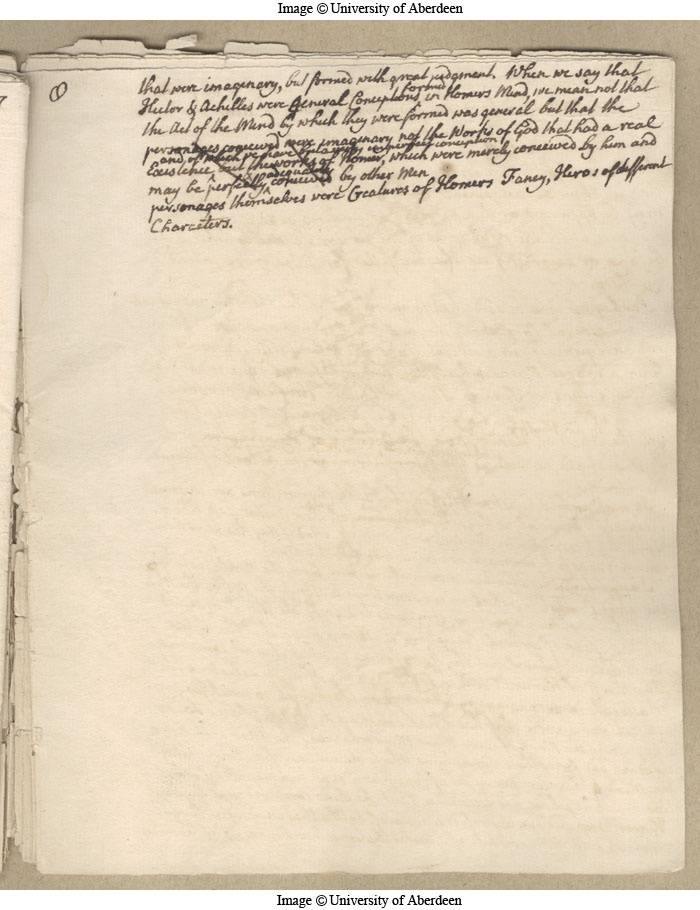 Image © University of Aberdeen
8
that were imaginary, but formed with great judgment. When we say that
Hector & Achilles were General Conceptions formed in Homers Mind, we mean not that
the Act of the Mind by which they were formed was general but that the
personages conceived were imaginary not the Works of God that had a real
and of which we have but a very imperfect conception
Existence, but the works of Homer, which were merely conceived by him and
adequately
may be perfectly conceived by other Men
personages themselves were Creatures of Homers Fancy, Heros of different
Characters.
Image © University of Aberdeen